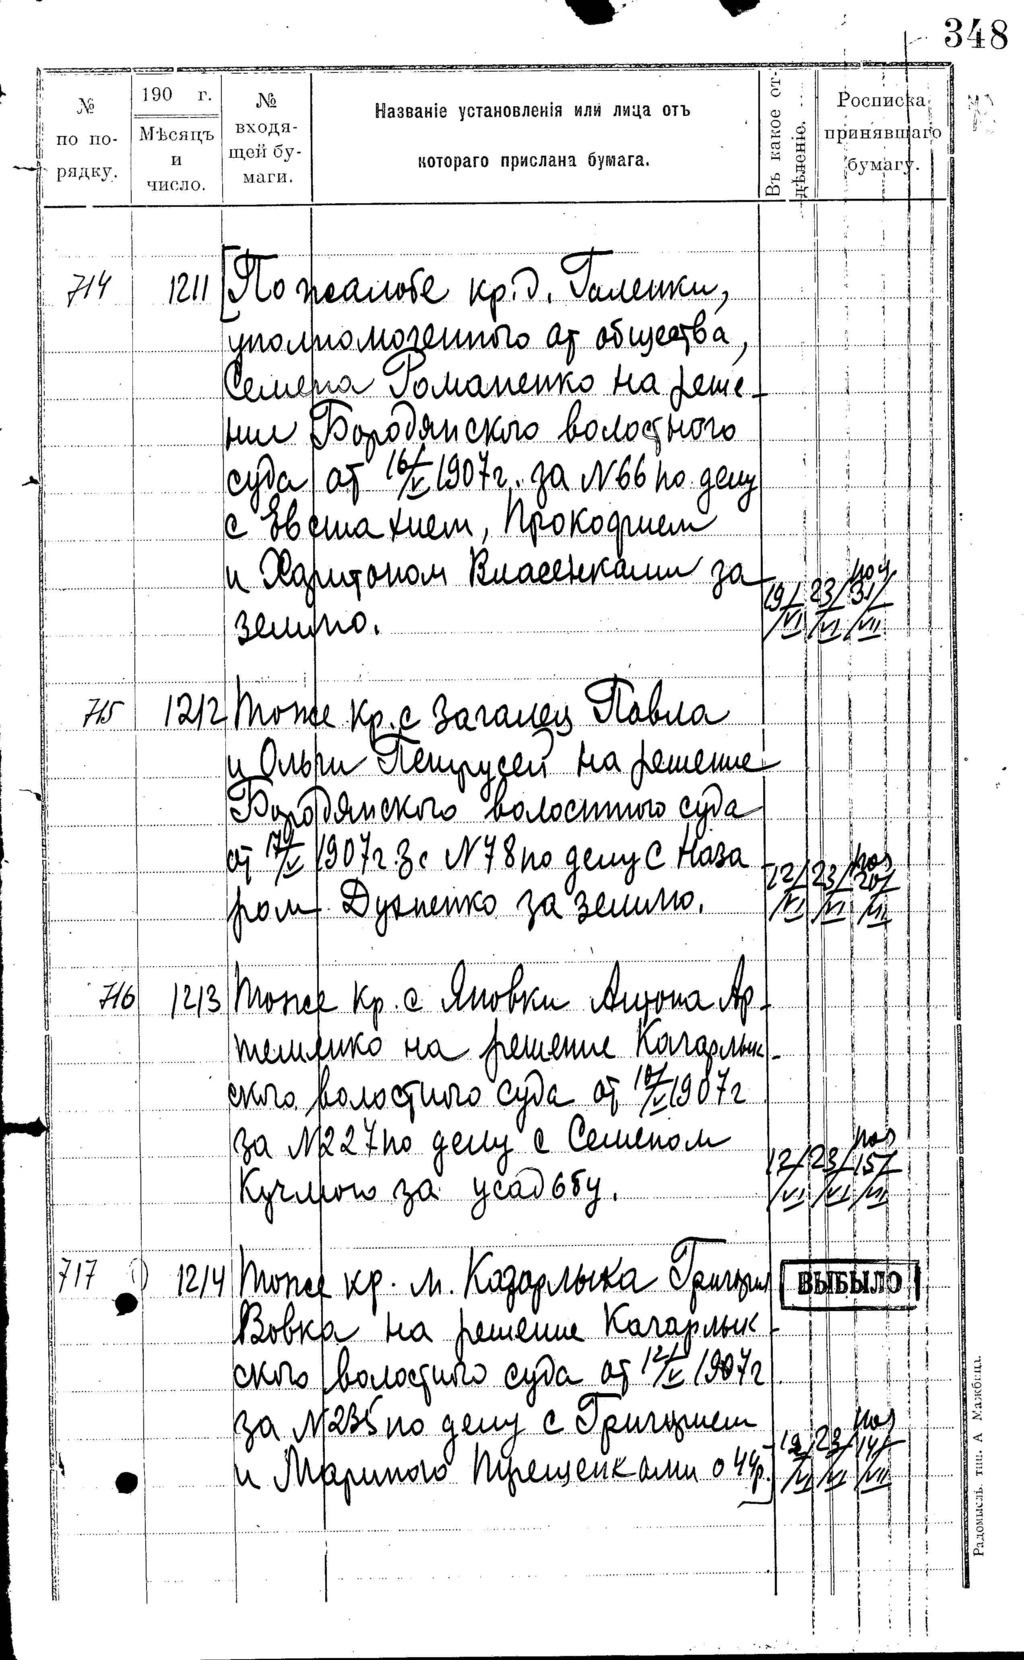 348
№ по по-рядку.
190 г.
Мѣсяцъ и число.
№ входя-щей бу-маги.
Названіе установленія или лица отъ
котораго прислана бумага.
Въ какое от-дѣленіе.
Росписка принявшаго бумагу.
714 1211 По жалобе кр. д. Галенки,
уполномоченного от общества,
Семена Романенко на реше-
нии Бородянского волостного
суда от 16/V 1907 г. за N 66 по делу
с Евстахием, Прокофием
и Харитоном Власенками за
землю.
19/VI 23/VI 31/VII
715 1212 Тоже кр. с Загалец Павла
и Ольги Петрусей на решение
Бородянского волостного суда
от 1907 г. за N 78 по делу с Наза
ром Духненко за землю.
12/VI 23/VI 20/VII
716 1213 Тоже кр. с Яновки Антона Ар-
темленко на решение Кагарлык-
ского волостного суда от 1907 г
за N 227 по делу с Семеном
Кучмою за усадьбу.
12/VI 23/VI 15/VII
717 1214 Тоже кр. м. Кагарлыка Григория
ВЫБЫЛО
Вовка на решение Кагарлык-
ского волостного суда от 12/V 1907 г
за N 235 по делу с Григорием
и Мариною Терещенками о 44 р.
12/VI 23/VI 14/VII
Радомысль. тип. А Мажбица.